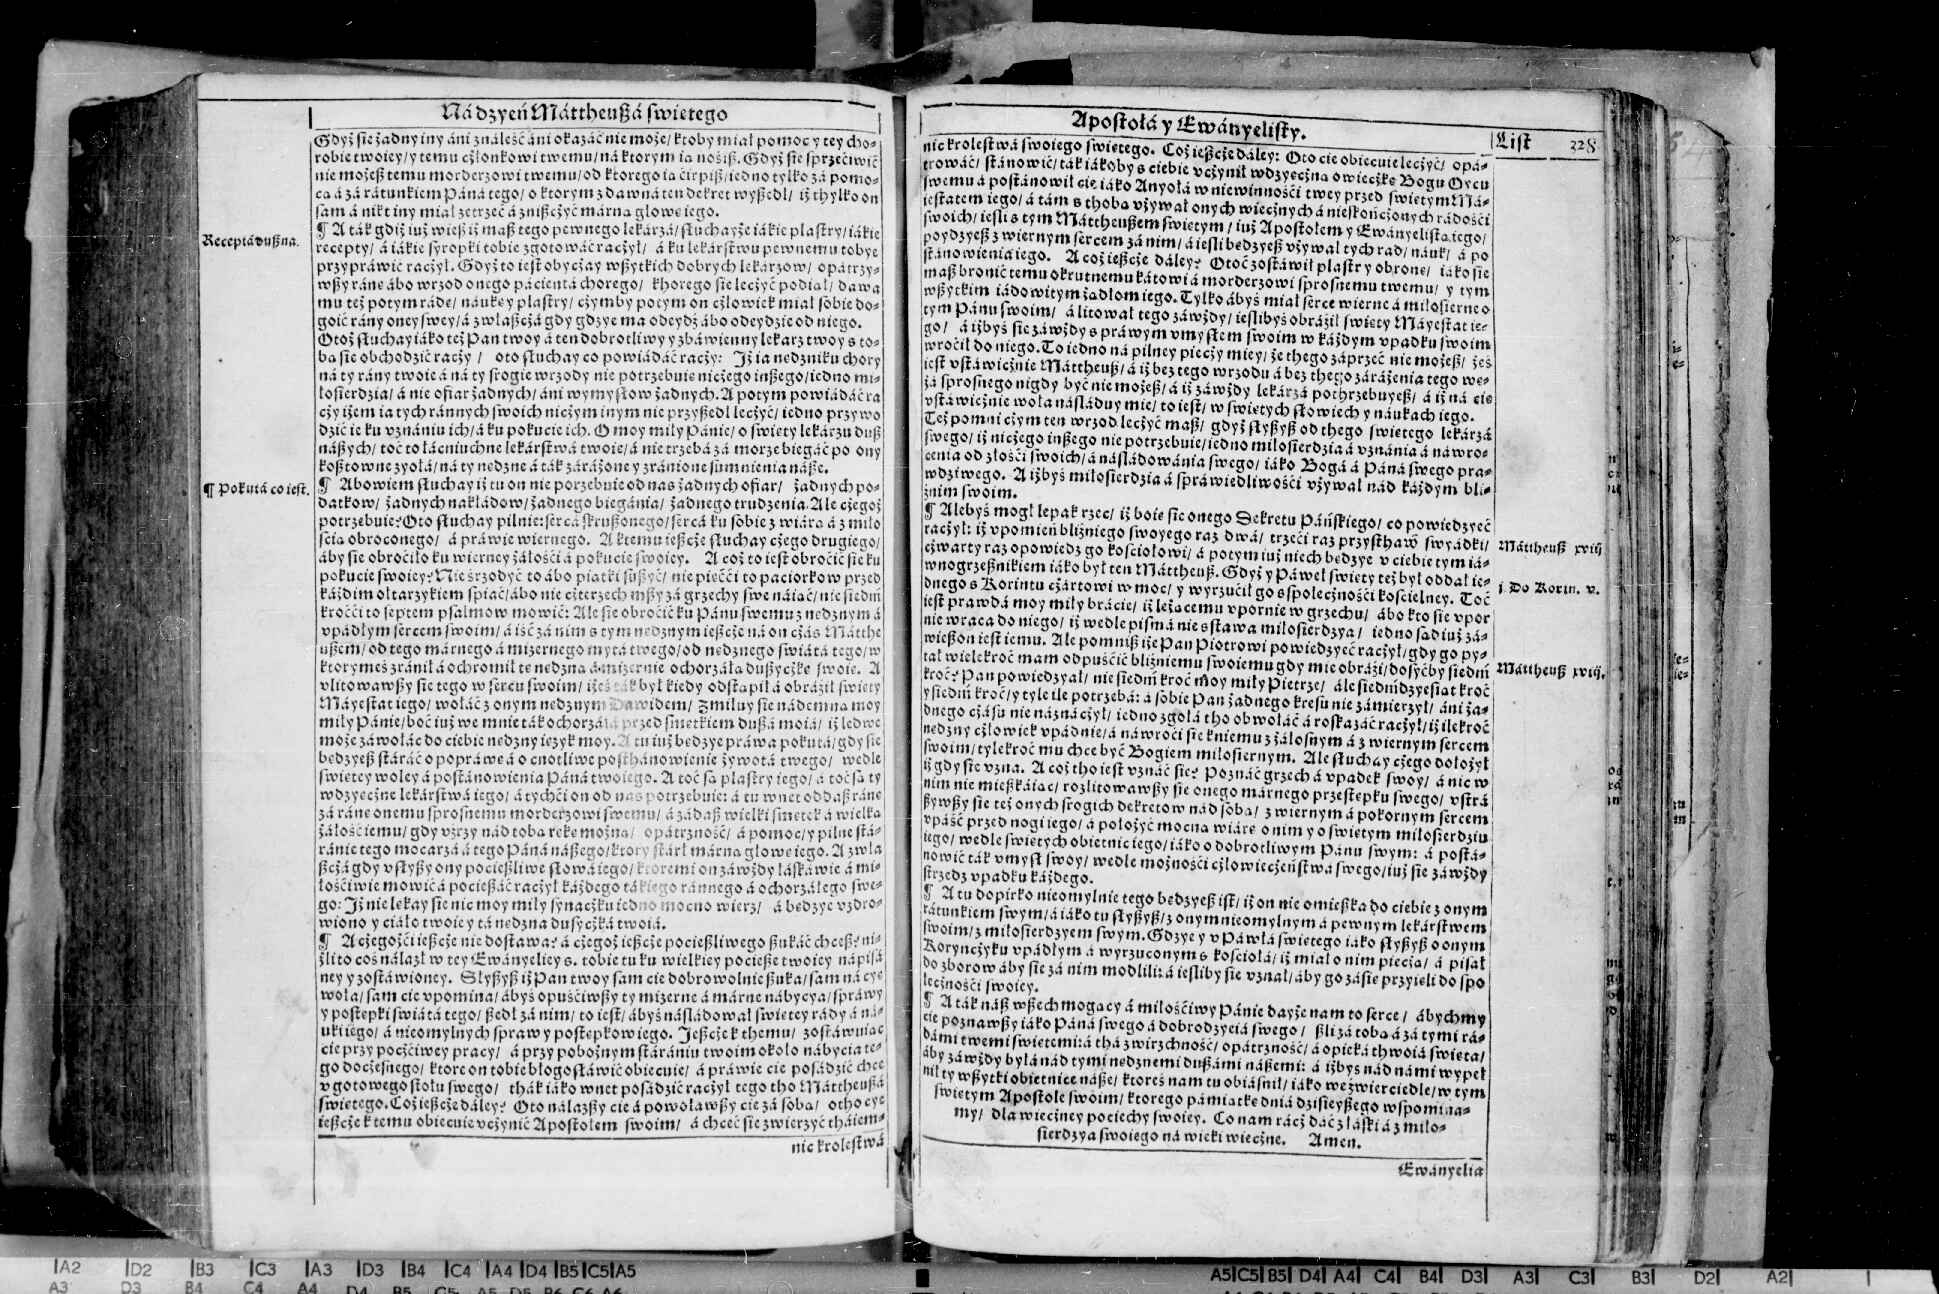 Ná dzyeń Máttheuszá swiętego
Gdyż się żadny iny áni ználeść áni okázáć nie może/ ktoby miał pomoc y tey cho-
robie twoiey/ y temu członkowi twemu/ ná ktorym ią nosisz. Gdyż się sprzeciwić
nie możesz temu morderzowi twemu/ od ktorego ią cirpisz/ iedno tylko zá pomo-
cą á zá rátunkiem Páná tego/ o ktorym z dawná ten dekret wyszedł/ iż thylko on
sam á nikt iny miał zetrzeć á zniszczyć márną głowę iego.
¶ A ták gdiż iuż wiesz iż masz tego pewnego lekárzá/ słuchayże iákie plastry/ iákie
recepty/ á iákie syropki tobie zgotowáć raczył/ á ku lekárstwu pewnemu tobye
przypráwić raczył. Gdyż to iest obyczay wszytkich dobrych lekárzow/ opátrzy-
wszy ránę ábo wrzod onego pácientá chorego/ khorego się leczyć podiął/ dawa
mu też potym rádę/ náukę y plastry/ czymby potym on człowiek miał sobie do-
goić rány oney swey/ á zwłaszczá gdy gdzye ma odeydź ábo odeydzie od niego.
Otoż słuchay iáko też Pan twoy á ten dobrotliwy y zbáwienny lekarz twoy s to-
bą się obchodzić raczy/ oto słuchay co powiádáć raczy: Iż ia nędzniku chory
ná ty rány twoie á ná ty srogie wrzody nie potrzebuię niczego inszego/ iedno mi-
łosierdzia/ á nie ofiar żadnych/ áni wymysłow żadnych. A potym powiádáć ra
czy iżem ia tych ránnych swoich niczym inym nie przyszedł leczyć/ iedno przywo
dzić ie ku vznániu ich/ á ku pokucie ich. O moy miły Pánie/ o święty lekárzu dusz
nászych/ toć to łácniuchne lekárstwá twoie/ á nie trzebá zá morze biegáć po ony
kosztowne zyołá/ ná ty nędzne á ták záráżone y zránione sumnienia násze.
¶ Abowiem słuchay iż tu on nie porzebuie od nas żadnych ofiar/ żadnych po-
datkow/ żadnych nakłádow/ żadnego biegánia/ żadnego trudzenia. Ale czegoż
potrzebuie? Oto słuchay pilnie: sercá skruszonego/ sercá ku sobie z wiárą á z miło
ścią obroconego/ á práwie wiernego. A k temu ieszcze słuchay czego drugiego/
áby się obrociło ku wierney żáłości á pokucie swoiey. A coż to iest obrocić się ku
pokucie swoiey? Nie śrzodyć to ábo piątki suszyć/ nie pięćći to paciorkow przed
káżdim ołtarzykiem spiáć/ ábo nie czterzech mszy zá grzechy swe náiáć/ nie siedḿ
kroćći to septem psalmow mowić: Ale się obrocić ku Pánu swemu z nędznym á
vpádłym sercem swoim/ á iść zá nim s tym nędznym ieszcze ná on czás Mátthe
uszem/ od tego márnego á mizernego mytá twego/ od nędznego światá tego/ w
ktorymeś zránił á ochromił tę nędzną á mizernie ochorzáłą duszyczkę swoię. A
vlitowawszy się tego w sercu swoim/ iżeś ták był kiedy odstąpił á obráził święty
Máyestat iego/ wołáć z onym nędznym Dawidem/ Zmiłuy się nádemną moy
miły Pánie/ boć iuż we mnie ták ochorzáłá przed smętkiem duszá moiá/ iż ledwe
może záwołác do ciebie nędzny ięzyk moy. A tu iuż będzye práwa pokutá/ gdy się
będzyesz stáráć o popráwę á o cnotliwe posthánowienie żywotá twego/ wedle
świętey woley á postánowienia Páná twoiego. A toć są plastry iego/ á toć są ty
wdzyęczne lekárstwá iego/ á tychći on od nas potrzebuie: á tu wnet oddasz ránę
zá ránę onemu sprosnemu morderzowi swemu/ á zádasz wielki smętek á wielką
żáłość iemu/ gdy vźrzy nád tobą rękę możną/ opátrzność/ á pomoc/ y pilne stá-
ránie tego mocarzá á tego Páná nászego/ ktory stárł márną głowę iego. A zwła
szczá gdy vsłyszy ony pocieszliwe słowá iego/ ktoremi on záwżdy łáskáwie á mi-
łościwie mowić á pocieszáć raczył káżdego tákiego ránnego á ochorzáłego swe-
go: Iż nie lękay się nic moy miły synaczku iedno mocno wierz/ á będzye vzdro-
wiono y ciáło twoie y tá nędzna dusyczká twoiá.
¶ A czegożći ieszcze nie dostawa? á czegoż ieszcze pocieszliwego szukáć chcesz? ni-
żli to coś nálazł w tey Ewányeliey s. tobie tu ku wielkiey pociesze twoiey nápisá
ney y zostáwioney. Słyszysz iż Pan twoy sam cię dobrowolnie szuka/ sam ná cye
woła/ sam cię vpomina/ ábyś opuściwszy ty mizerne á márne nábycya/ spráwy
y postępki światá tego/ szedł zá nim/ to iest/ ábyś náśládował świętey rády á ná-
uki iego/ á nieomylnych spraw y postępkow iego. Ieszcze k themu/ zostáwuiąc
cię przy poczciwey pracy/ á przy pobożnym stárániu twoim około nábycia te-
go doczesnego/ ktore on tobie błogosłáwić obiecuie/ á práwie cię posádzić chce
v gotowego stołu swego/ thák iáko wnet posádzić raczył tego tho Máttheuszá
świętego. Coż ieszcze dáley? Oto nálazszy cię á powoławszy cię zá sobą/ otho cye
ieszcze k temu obiecuie vczynić Apostołem swoim/ á chceć się zwierzyć tháiem-
nic krolestwá
Receptá duszna.
¶ Pokutá co iest.
Apostołá y Ewányelisty.
List 328
nic krolestwá swoiego świętego. Coż ieszcze dáley: Oto cię obiecuie leczyć/ opá-
trowáć/ stánowić/ ták iákoby s ciebie vczynił wdzyęczną owieczkę Bogu Oycu
swemu á postánowił cię iáko Anyołá w niewinności twey przed świętym Má-
iestatem iego/ á tám s thobą vżywał onych wiecznych á nieskończonych rádości
swoich/ iesli s tym Máttheuszem świętym/ iuż Apostołem y Ewányelistą iego/
poydzyesz z wiernym sercem zá nim/ á iesli będzyesz vżywał tych rad/ náuk/ á po
stánowienia iego. A coż ieszcze dáley? Otoć zostáwił plastr y obronę/ iáko się
masz bronić temu okrutnemu kátowi á morderzowi sprosnemu twemu/ y tym
wszytkim iádowitym żądłom iego. Tylko ábyś miał serce wierne á miłosierne o
tym Pánu swoim/ á litował tego záwżdy/ ieslibyś obráził święty Máyestat ie-
go/ á iżbyś się záwżdy s práwym vmysłem swoim w káżdym vpadku swoim
wrocił do niego. To iedno ná pilney pieczy miey/ że thego záprzeć nie możesz/ żeś
iest vstáwicznie Máttheusz/ á iż bez tego wrzodu á bez thego záráżenia tego wę-
żá sprosnego nigdy być nie możesz/ á iż záwżdy lekárzá pothrzebuyesz/ á iż ná cię
vstáwicznie woła násláduy mię/ to iest/ w świętych słowiech y náukach iego.
Też pomni czym ten wrzod leczyć masz/ gdyż słyszysz od thego świętego lekárzá
swego/ iż niczego inszego nie potrzebuie/ iedno miłosierdzia á vznánia á náwro-
cenia od złości swoich/ á násládowánia swego/ iáko Bogá á Páná swego pra-
wdziwego. A iżbyś miłosierdzia á spráwiedliwości vżywał nád káżdym bli-
źnim swoim.
¶ Alebyś mogł lepak rzec/ iż boię się onego Dekretu Páńskiego/ co powiedzyeć
raczył: iż vpomień bliźniego swoyego raz dwá/ trzeći raz przysthaw swyádki/
czwarty raz opowiedz go kościołowi/ á potym iuż niech będzye v ciebie tym iá-
wnogrzesznikiem iáko był ten Máttheusz. Gdyż y Páweł święty też był oddał ie-
dnego s Korintu czártowi w moc/ y wyrzucił go s społeczności kościelney. Toć
iest prawdá moy miły brácie/ iż leżącemu vpornie w grzechu/ ábo kto się vpor
nie wraca do niego/ iż wedle pismá nie sstawa miłosierdzya/ iedno sąd iuż zá-
wieszon iest iemu. Ale pomnisz iże Pan Piotrowi powiedzyeć raczył/ gdy go py-
tał wielekroć mam odpuścić bliźniemu swoiemu gdy mię obrázi/ dosyćby siedḿ
kroć? Pan powiedzyał/ nie siedḿ kroć moy miły Pietrze/ ále siedḿdzyesiąt kroć
y siedḿ kroć/ y tyle ile potrzebá: á sobie Pan żadnego kresu nie zámierzył/ áni ża-
dnego czásu nie náznáczył/ iedno zgołá tho obwołáć á roskázáć raczył/ iż ilekroć
nędzny człowiek vpádnie/ á náwroci się k niemu z żáłosnym á z wiernym sercem
swoim/ tylekroć mu chce być Bogiem miłosiernym. Ale słuchay czego dołożył
iż gdy się vzna. A coż tho iest vznáć się? Poznáć grzech á vpadek swoy/ á nic w
nim nie mieszkáiąc/ rozlitowawszy się onego márnego przestępku swego/ vstrá
szywszy się też onych srogich dekretow nád sobą/ z wiernym á pokornym sercem
vpáść przed nogi iego/ á położyć mocną wiárę o nim y o świętym miłosierdziu
iego/ wedle świętych obietnic iego/ iáko o dobrotliwym Pánu swym: á postá-
nowić ták vmysł swoy/ wedle możności człowieczeństwá swego/ iuż się záwżdy
strzedz vpadku káżdego.
¶ A tu dopirko nieomylnie tego będzyesz ist/ iż on nie omieszka do ciebie z onym
rátunkiem swym/ á iáko tu słyszysz/ z onym nieomylnym á pewnym lekárstwem
swoim/ z miłosierdzyem swym. Gdzye y v Páwłá świętego iáko słyszysz o onym
Korynczyku vpádłym á wyrzuconym s kościołá/ iż miał o nim pieczą/ á pisał
do zborow áby się zá nim modlili: á iesliby się vznał/ áby go zásię przyięli do spo
łeczności swoiey.
¶ A ták nász wszechmogący á miłościwy Pánie dayże nam to serce/ ábychmy
cię poznawszy iáko Páná swego á dobrodzyeiá swego/ szli zá tobą á zá tymi rá-
dámi twemi świętemi: á thá zwirzchność/ opátrzność/ á opieká thwoiá święta/
áby záwżdy byłá nád tymi nędznemi duszámi nászemi: á iżbyś nád námi wypeł
nił ty wszytki obietnice násze/ ktoreś nam tu obiáśnił/ iáko we źwierciedle/ w tym
świętym Apostole swoim/ ktorego pámiątkę dniá dzisieyszego wspomina-
my/ dla wieczney pociechy swoiey. Co nam rácz dáć z łáski á z miło-
sierdzya swoiego ná wieki wieczne. Amen.
Ewányelia
Máttheusz xviij
j. Do Korin. v.
Máttheusz xviij.
A2 D2 B3 C3 A3 D3 B4 C4 A4 D4 B5 C5 A5
A5 C5 B5 D4 A4 C4 B4 D3 A3 C3 B3 D2 A2